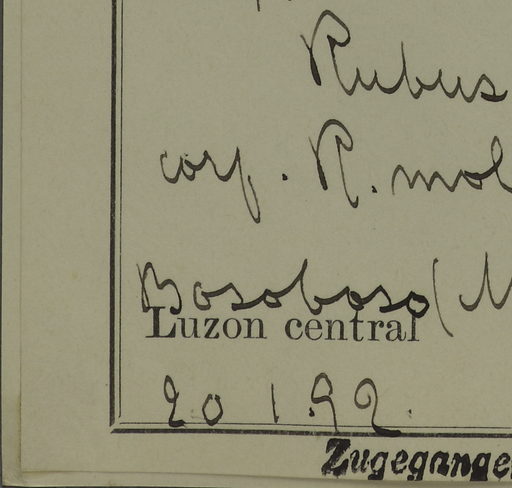 Rubus
corf. R. mol
Bosoboso (M
Luzon central
20 1.92.
Zugegange